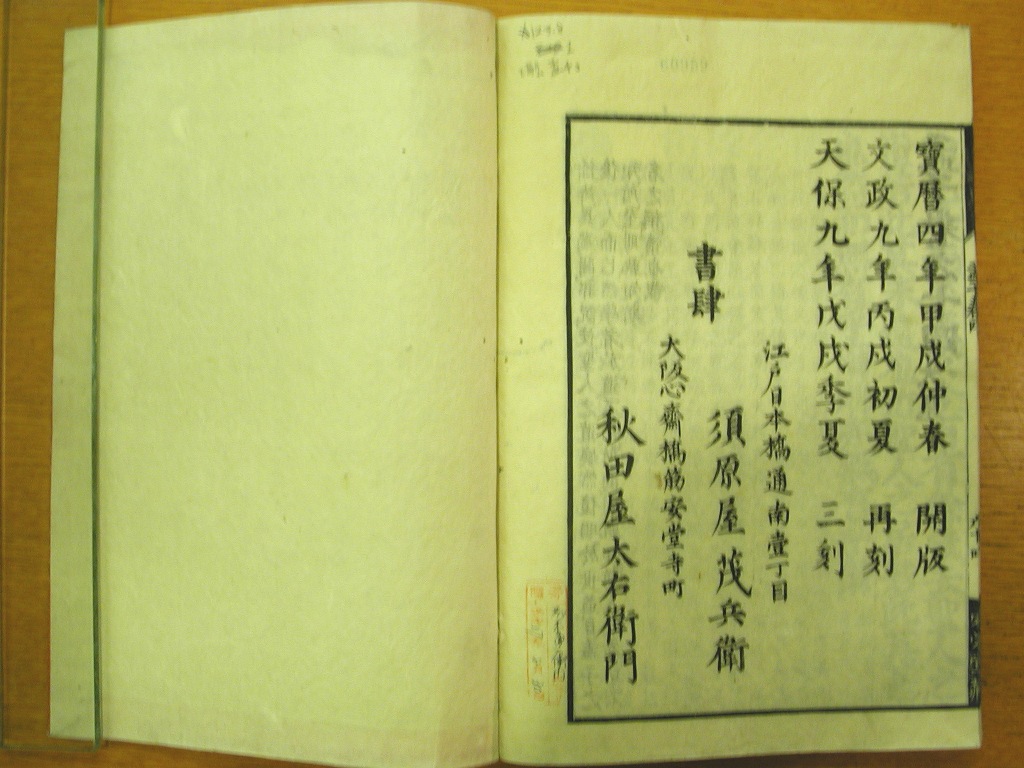 寶曆四年甲戌仲春 開版
文政九年丙戌初夏 再刻
天保九年戊戌季夏 三刻
江戶日本橋通南壹丁目
須原屋茂兵衛
書肆
大阪心齋橋筋安堂寺町
秋田屋太右衛門
60959